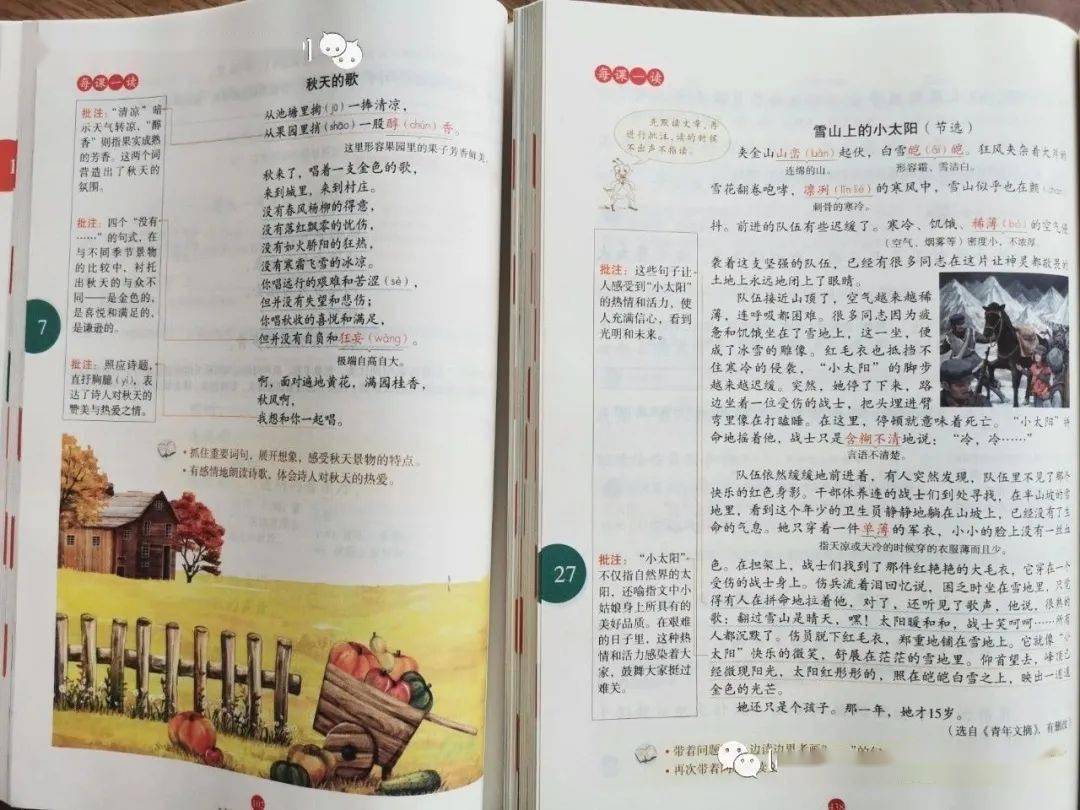 每课一读
秋天的歌
批注：“清凉”暗
示天气转凉，“醇
香”则指果实成熟
的芳香。这两个词
营造出了秋天的
氛围。
批注：四个“没有
……”的句式，在
与不同季节景物
的比较中，衬托
出秋天的与众不
同——是金色的，
是喜悦和满足的，
是谦逊的。
批注：照应诗题，
直抒胸臆(yì)，表
达了诗人对秋天的
赞美与热爱之情。
从池塘里掬(jū)一捧清凉，
从果园里捎(shāo)一股醇(chún)香。
这里形容果园里的果子芳香鲜美。
秋来了，唱着一支金色的歌，
来到城里，来到村庄。
没有春风杨柳的得意，
没有落红飘零的忧伤，
没有如火骄阳的狂热，
没有寒霜飞雪的冰凉。
你唱远行的艰难和苦涩(sè)，
但并没有失望和悲伤；
你唱秋收的喜悦和满足，
但并没有自负和狂妄(wàng)。
极端自高自大。
啊，面对遍地黄花，满园桂香，
秋风啊，
我想和你一起唱。
•抓住重要词句，展开想象，感受秋天景物的特点。
•有感情地朗读诗歌，体会诗人对秋天的热爱。
7
每课一读
先默读文章，再
进行批注，读的时候
不出声不指读。
雪山上的小太阳（节选）
夹金山山峦(luán)起伏，白雪皑(ái)皑。狂风夹杂着大片的
连绵的山。
形容霜、雪洁白。
雪花翻卷咆哮，凛冽(lǐn liè)的寒风中，雪山似乎也在颤
刺骨的寒冷。
抖。前进的队伍有些迟缓了。寒冷、饥饿、稀薄(bó)的空气侵
（空气、烟雾等）密度小，不浓厚。
袭着这支坚强的队伍，已经有很多同志在这片让神灵都敬畏的
土地上永远地闭上了眼睛。
队伍接近山顶了，空气越来越稀
薄，连呼吸都困难。很多同志因为疲
惫和饥饿坐在了雪地上，这一坐，便
成了冰雪的雕像。红毛衣也抵挡不
住寒冷的侵袭，“小太阳”的脚步
越来越迟缓。突然，她停了下来，路
边坐着一位受伤的战士，把头埋进臂
弯里像在打瞌睡。在这里，停顿就意味着死亡。“小太阳”拼
命地拉着他，战士只是含糊不清地说：“冷，冷……”
言语不清楚。
队伍依然缓缓地前进着，有人突然发现，队伍里不见了那个
快乐的红色身影。干部休养连的战士们到处寻找，在半山坡的雪
地里，看到这个年少的卫生员静静地躺在山坡上，已经没有了生
命的气息。她只穿着一件单薄的军衣，小小的脸上没有一丝血
指天凉或天冷的时候穿的衣服薄而且少。
色。在担架上，战士们找到了那件红艳艳的大毛衣，它穿在一个
受伤的战士身上。伤兵流着泪回忆说，困乏时坐在雪地里，只觉
得有人在拼命地拉着他，对了，还听见了歌声，他说，很熟的
歌：翻过雪山是晴天，嘿！太阳暖和和，战士笑呵呵……所有
人都沉默了。伤员脱下红毛衣，郑重地铺在雪地上。它就像“小
太阳”快乐的微笑，舒展在茫茫的雪地里。仰首望去，峰顶已
经微现阳光，太阳红彤彤的，照在皑皑白雪之上，映出一道道
金色的光芒。
她还只是个孩子。那一年，她才15岁。
（选自《青年文摘》，有删改）
批注：这些句子让
人感受到“小太阳”
的热情和活力，使
人充满信心，看到
光明和未来。
批注：“小太阳”
不仅指自然界的太
阳，还喻指文中小
姑娘身上所具有的
美好品质。在艰难
的日子里，这种热
情和活力感染着大
家，鼓舞大家挺过
难关。
27
•带着问题
边读边思考
•再次带着问